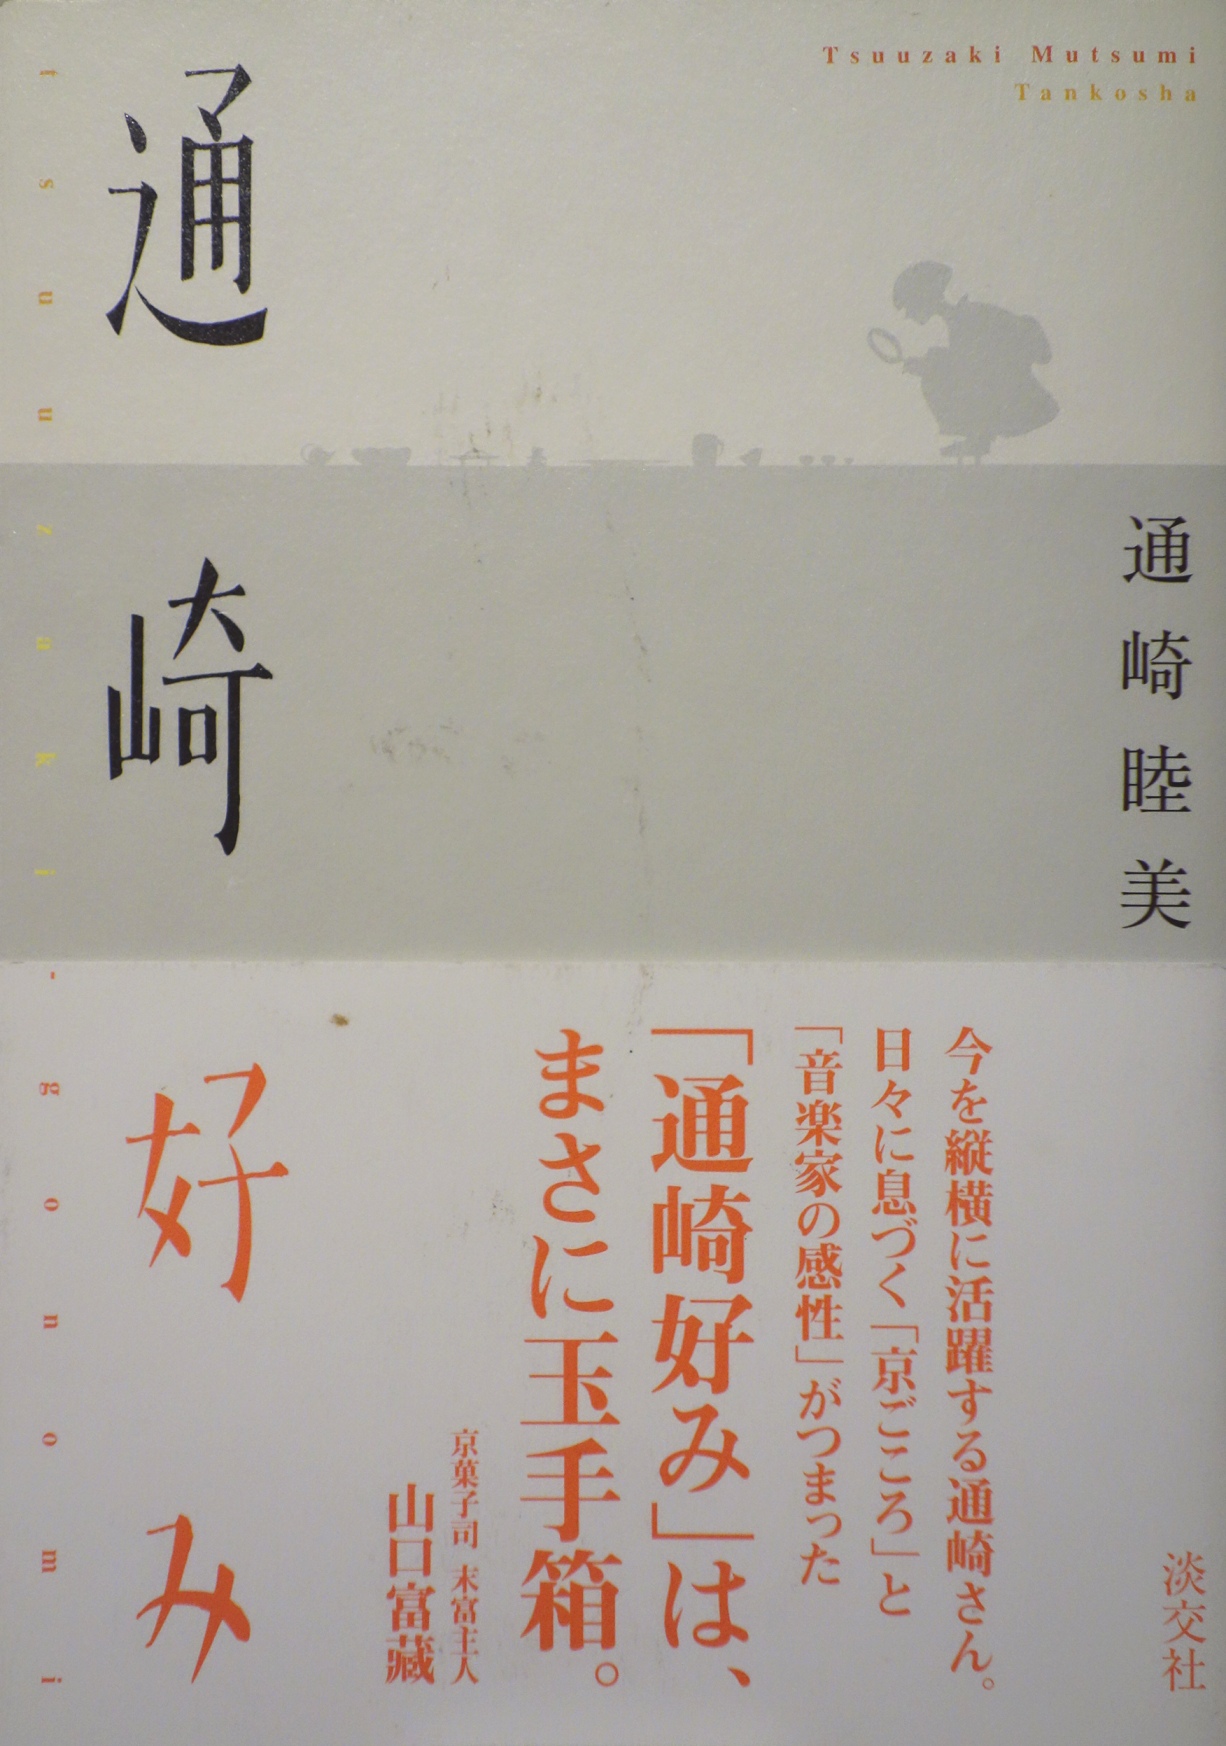 Tsuuzaki Mutsumi
Tankosha
通崎好み
tsuuzaki-gonomi
通崎睦美
今を縦横に活躍する通崎さん。
日々に息づく「京ごころ」と
「音楽家の感性」がつまった
「通崎好み」は、
まさに玉手箱。
京菓子司 末富主人
山口富藏
淡交社